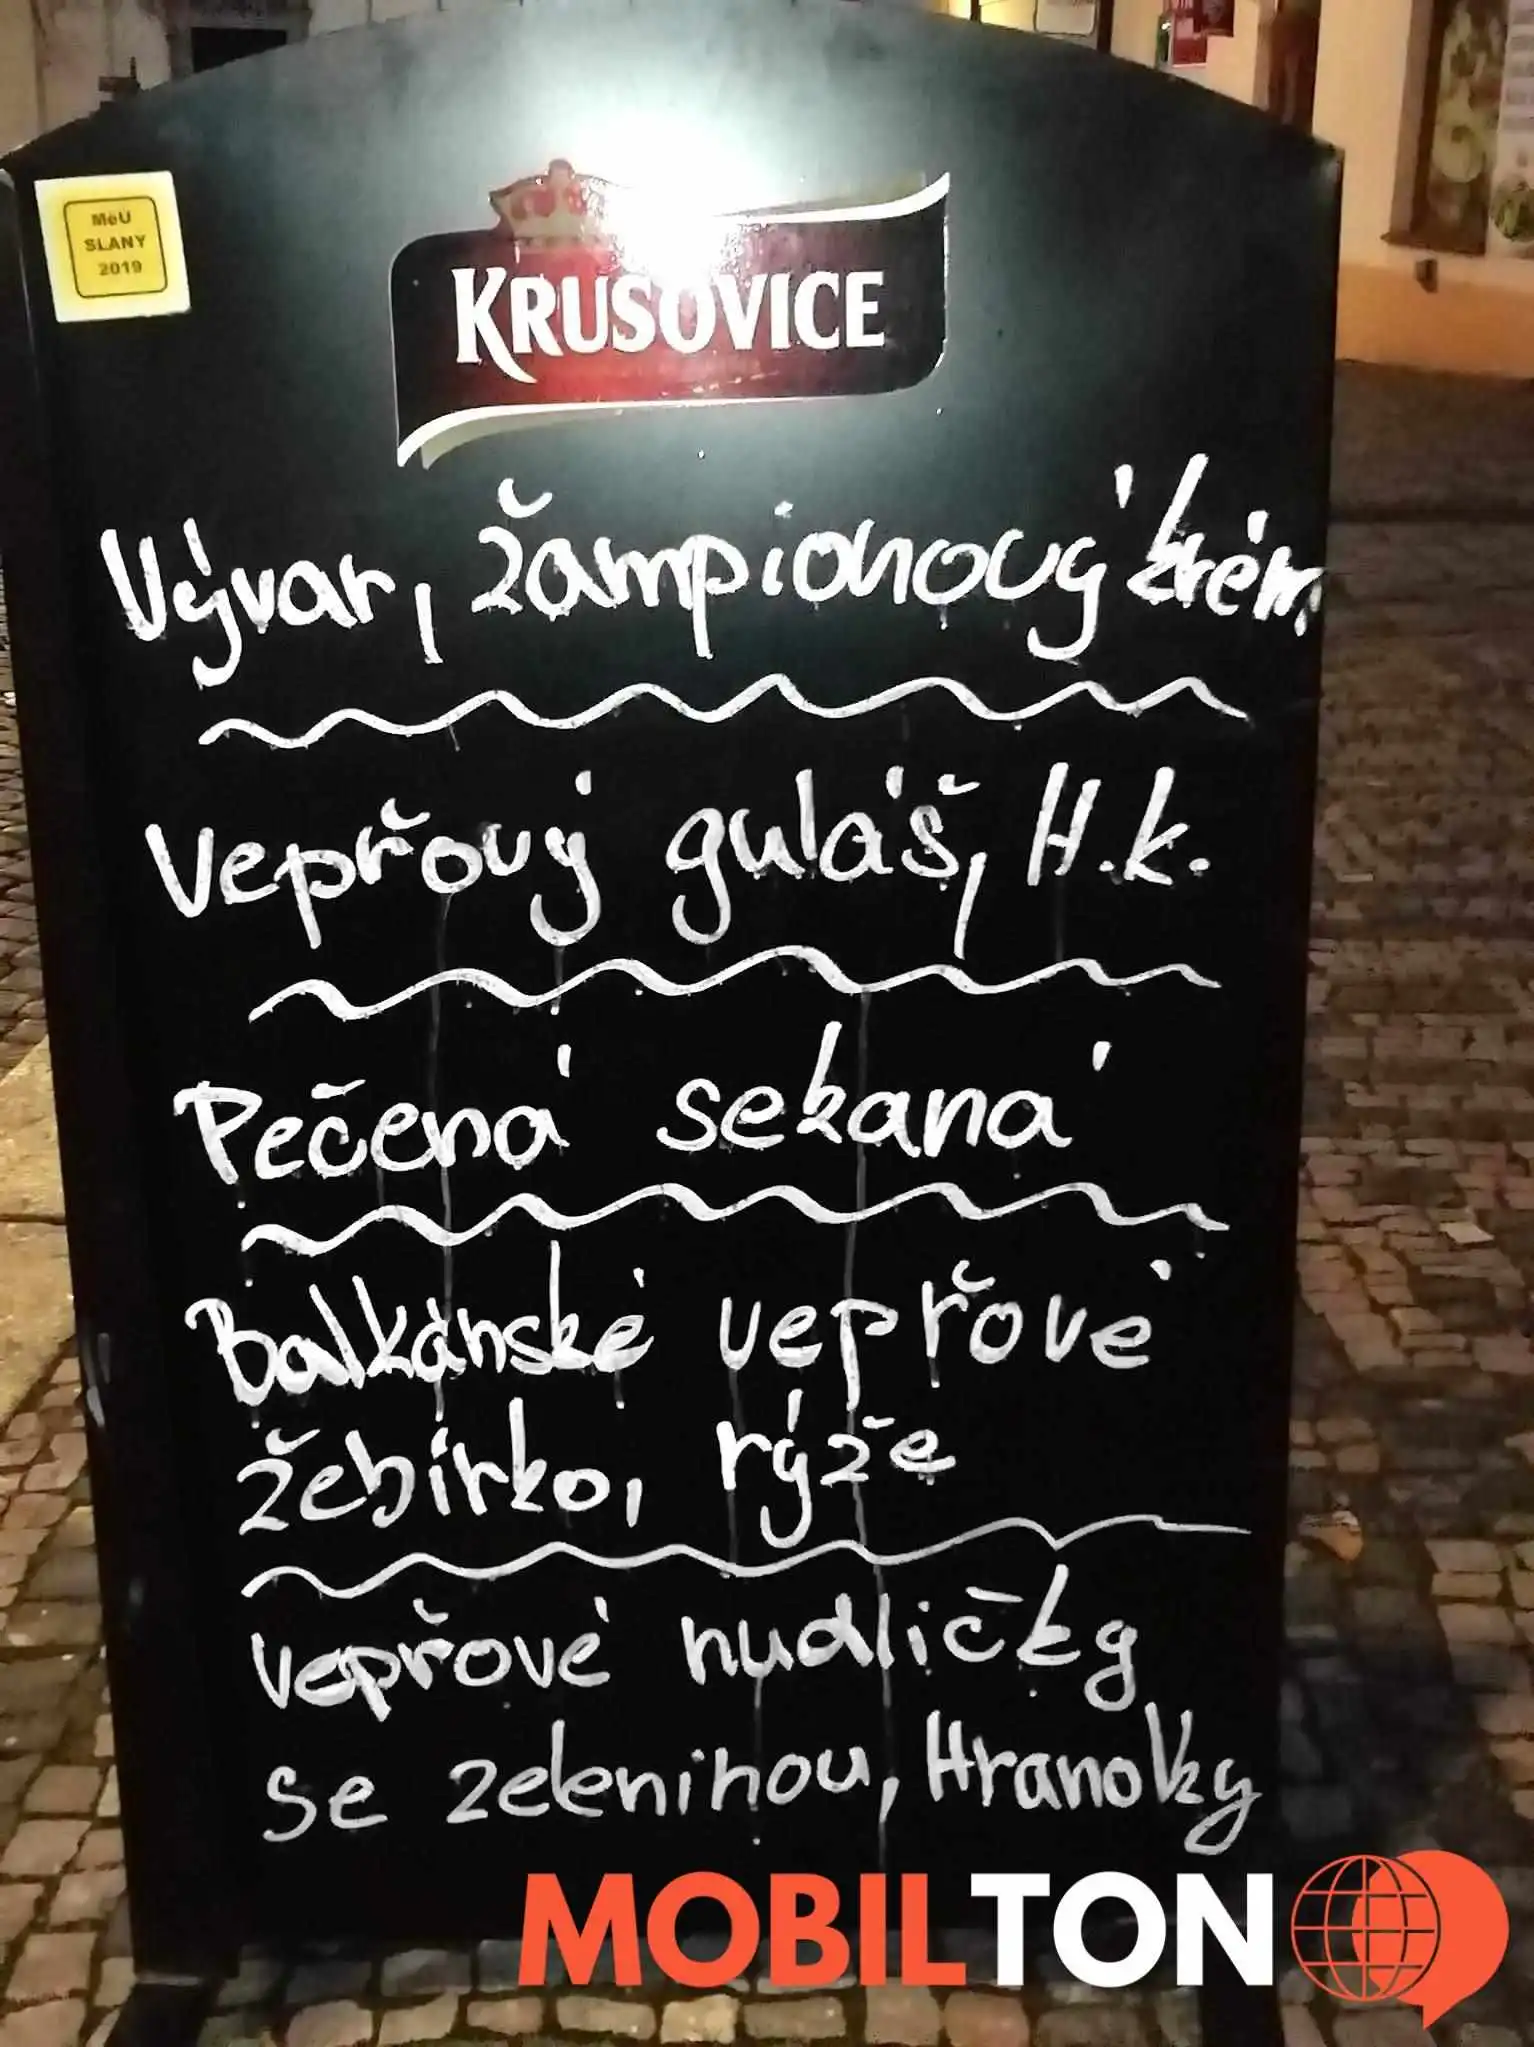 MeU
SLANY
2019
KRUSOVICE
Vývar, žampionový krém
Vepřový guláš, H.k.
Pečená sekaná
Balkánské vepřové
žebírko, rýže
Vepřové nudličky
se zeleninou, Hranolky
MOBILTON